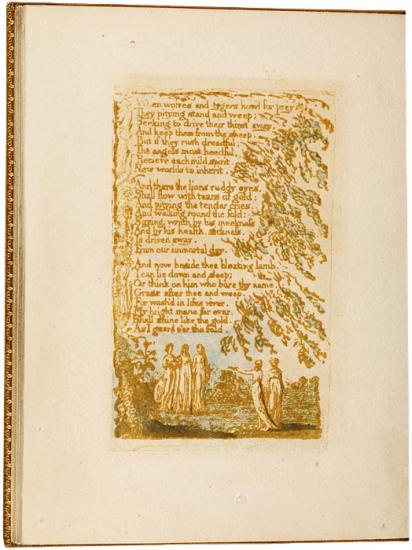 When wolves and tygers howl for prey
They pitying stand and weep;
Seeking to drive their thirst away,
And keep them from the sheep,
But if they rush dreadful;
The angels most heedful,
Recieve each mild spirit,
New worlds to inherit.
And there the lions ruddy eyes,
Shall flow with tears of gold:
And pitying the tender cries,
And walking round the fold:
Saying: wrath by his meekness
And by his health, sickness,
Is driven away,
From our immortal day.
And now beside thee bleating lamb,
I can lie down and sleep;
Or think on him who bore thy name,
Grase after thee and weep.
For wash'd in lifes river,
My bright mane for ever,
Shall shine like the gold,
As I guard o'er the fold.